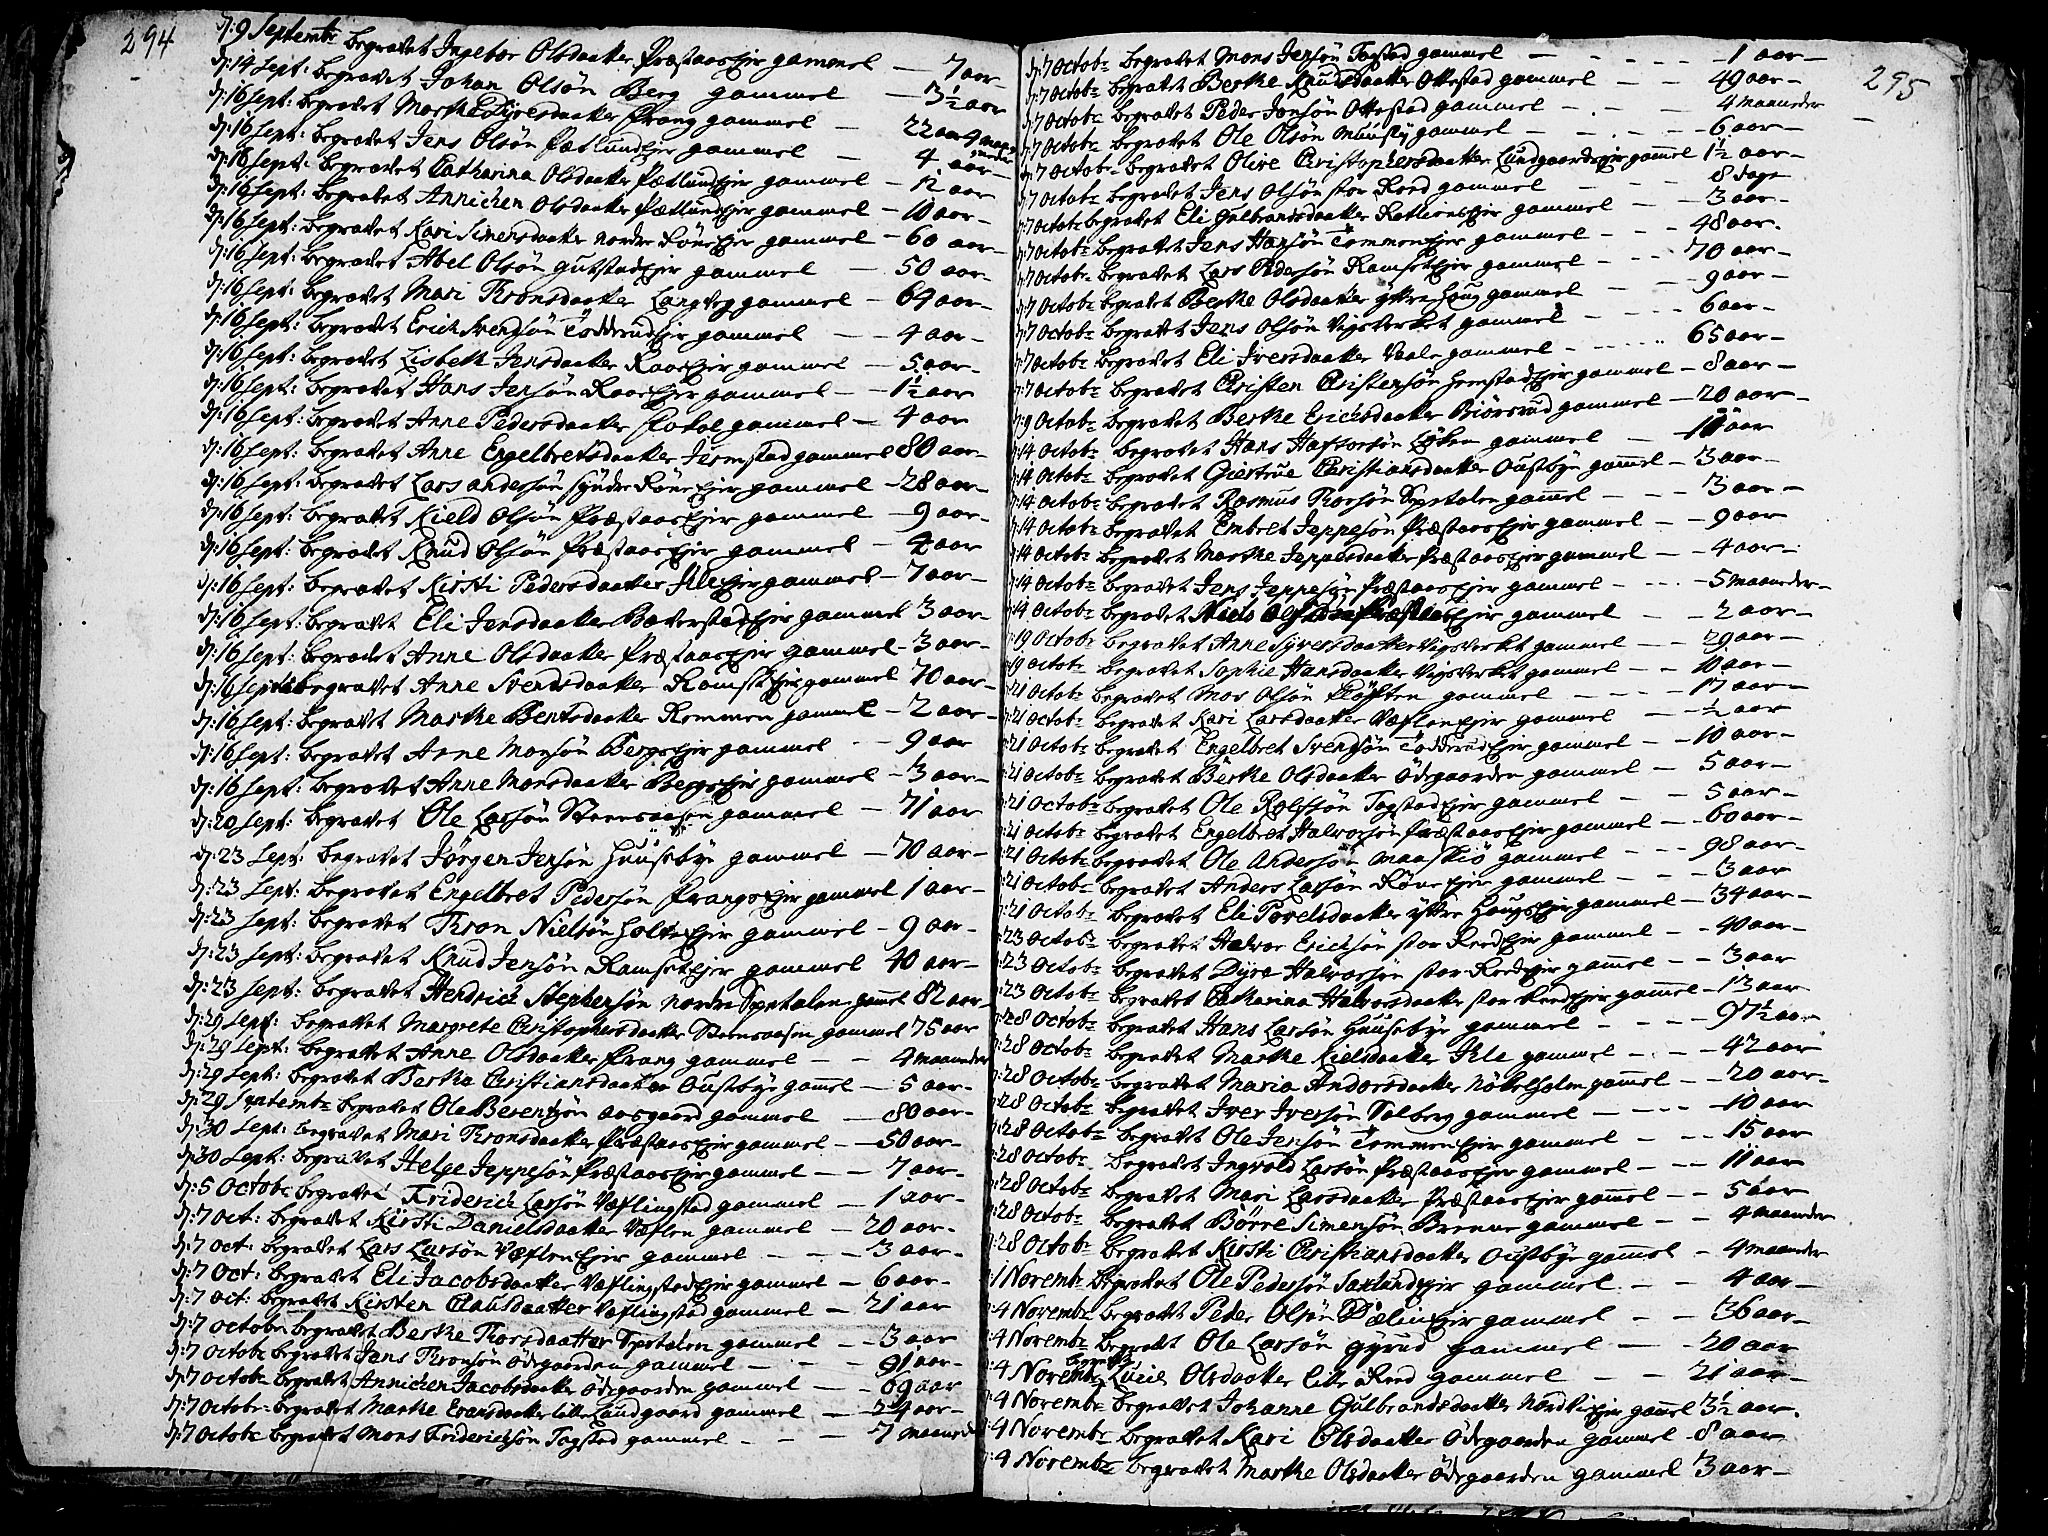 294
d: 9 Septembr begravet Ingebor Olsdaatter Præstaas Eje gammel — 7 aar
d: 14 Sept: begravet Johan Olsøn Berg gammel — 3½ aar
d: 16 Sept: begravet Marthe Dyresdaatter Prang gammel — 22 aar 4 maaneder
d: 16 Sept: begravet Jens Olsøn Pætlund Ejer gammel — 4 aar
d: 16 Sept: begravet Catharina Olsdaatter Pætlund Ejer gammel — 12 aar
d: 16 Sept: begravet Annichen Olsdaatter Pætlund Ejer gammel — 10 aar
d: 16 Sept: begravet Kari Simensdaatter nordre Röne Ejer gammel — 60 aar
d: 16 Sept: begravet Abel Olsøn Gutstad Ejer gammel — 50 aar
d: 16 Sept: begravet Mari Thronsdaatter Langseg gammel — 69 aar
d: 16 Sept: begravet Erich Svendsøn Todderud Ejer gammel — 4 aar
d: 16 Sept: begravet Lisbeth Jensdaatter Raas Ejer gammel — 5 aar
d: 16 Sept: begravet Hans Jensøn Raas Ejer gammel — 1½ aar
d: 16 Sept: begravet Anne Pedersdaatter gammel — 4 aar
d: 16 Sept: begravet Anne Engelbretsdaatter Jernstad gammel 80 aar
d: 16 Sept: begravet Lars Andersøn Syndre Röne Ejer gammel — 28 aar
d: 16 Sept: begravet Kield Olsøn Præstaas Ejer gammel — 9 aar
d: 16 Sept: begravet Knud Olsøn Præstaas Ejer gammel — 4 aar
d: 16 Sept: begravet Kirsti Pedersdaatter Ihle Ejer gammel — 7 aar
d: 16 Sept: begravet Eli Jensdaatter Baverstad Ejer gammel 3 aar
d: 16 Sept: begravet Anne Olsdaatter Præstaas Ejer gammel — 3 aar
d: 16 Sept: begravet Anne Svendsdaatter Ramset Ejer gammel 70 aar
d: 16 Sept: begravet Marthe Berntsdaatter Remmen gammel — 2 aar
d: 16 Sept: begravet Arne Monsøn Bergs Ejer gammel — 9 aar
d: 16 Sept: begravet Anne Monsdaatter Bergs Ejer gammel — 3 aar
d: 20 Sept: begravet Ole Larsøn Steensaasen gammel — 71 aar
d: 23 Sept: begravet Jörgen Jensøn Huuseby gammel — 70 aar
d: 23 Sept: begravet Engelbret Pedersøn Prangs Ejer gammel 1 aar
d: 23 Sept: begravet Thron Nielsøn Holte Ejer gammel — 9 aar
d: 23 Sept: begravet Knud Jensøn Ramset Ejer gammel 40 aar
d: 23 Sept: begravet Hendrich Stephensøn nordre Spetalen gammel 82 aar
d: 29 Sept: begravet Margrete Christophersdaatter Steensaasen gammel 75 aar
d: 29 Sept: begravet Anne Olsdaatter Prang gammel — 4 maaneder
d: 29 Sept: begravet Bertha Christiansdaatter Oustbye gammel — 5 aar
d: 29 Septembr begravet Ole Berentsøn Aasgaard gammel — 80 aar
d: 30 Sept: begravet Mari Thronsdaatter Præstaas Ejer gammel — 50 aar
d: 30 Sept: begravet Helge Jeppesøn Præstaas Ejer gammel — 7 aar
d: 5 Octobr begravet Friderich Larsøn Væflingstad gammel — 1 aar
d: 7 Oct: begravet Kirsti Danielsdaatter Væflen gammel — 20 aar
d: 7 Oct: begravet Lars Larsøn Væflen Ejer gammel — 3 aar
d: 7 Oct: begravet Eli Jacobsdaatter Væflingstad Ejer gammel — 6 aar
d: 7 Oct: begravet Kirsten Clausdaatter Væflingstad gammel — 21 aar
d: 7 Octobr begravet Berthe Thorsdaatter Spetalen gammel — 3 aar
d: 7 Octobr begravet Jens Thronsøn Ödegaarden gammel — 91 aar
d: 7 Octobr begravet Annichen Jacobsdaatter Ödegaarden gammel — 69 aar
d: 7 Octobr begravet Marthe Evansdaatter Lille Lundgaard gammel — 24 aar
d: 7 Octobr begravet Mons Friderichsøn Togstad gammel — 7 maaneder
295
d: 7 Octobr begravet Mons Jensøn Togstad gammel — 1 aar
d: 7 Octobr begravet Berthe Knudsdaatter Ottestad gammel — 49 aar
d: 7 Octobr begravet Peder Jonsøn Ottestad gammel — 4 maaneder
d: 7 Octobr begravet Ole Olsøn gammel — 6 aar
d: 7 Octobr begravet Olive Christophersdaatter Lundgaards Ejer gammel 1½ aar
d: 7 Octobr begravet Jens Olsøn stor Reed gammel — 8 dage
d: 7 Octobr begravet Eli Gulbrandsdaatter Ejer gammel — 3 aar
d: 7 Octobr begravet Jens Hansøn Tommen Ejer gammel — 48 aar
d: 7 Octobr begravet Lars Pedersøn Ramset Ejer gammel — 70 aar
d: 7 Octobr begravet Berthe Olsdaatter yttre Houg gammel — 9 aar
d: 7 Octobr begravet Jens Olsøn Vigsverket gammel — 6 aar
d: 7 Octobr begravet Eli Iversdaatter Vaale gammel — 65 aar
d: 7 Octobr begravet Christen Christensøn Hemstad Ejer gammel — 8 aar
d: 9 Octobr begravet Berthe Erichsdaatter Biörnrud gammel — 20 aar
d: 14 Octobr begravet Hans Hafvorsøn Löken gammel — 10 aar
d: 14 Octobr begravet Giertrue Christiansdaatter Oustbye gammel — 3 aar
d: 14 Octobr begravet Rasmus Thorsøn Spetalen gammel — 3 aar
d: 14 Octobr begravet Embret Jeppesøn Præstaas Ejer gammel — 9 aar
d: 14 Octobr begravet Marthe Jeppesdaatter Præstaas Ejer gammel — 4 aar
d: 14 Octobr begravet Jens Jeppesøn Præstaas Ejer gammel — 5 maaneder
d: 14 Octobr begravet Niels Olsøn Præstaas Ejer gammel — 2 aar
d: 19 Octobr begravet Anne Syversdaatter Vigsverket gammel — 29 aar
d: 19 Octobr begravet Sophie Hansdaatter Vigsverket gammel — 10 aar
d: 21 Octobr begravet Mor Olsøn Kløften gammel — 17 aar
d: 21 Octobr begravet Kari Larsdaatter Væflen Ejer gammel — ½ aar
d: 21 Octobr begravet Engelbret Svendsøn Todderud Ejer gammel — 10 aar
d: 21 Octobr begravet Berthe Olsdaatter Ödegaarden gammel — 5 aar
d: 21 Octobr begravet Ole Rolfsøn Togstad Ejer gammel — 5 aar
d: 21 Octobr begravet Engelbret Halvorsøn Præstaas Ejer gammel — 60 aar
d: 21 Octobr begravet Ole Andersøn Maaskiö gammel — 98 aar
d: 21 Octobr begravet Anders Larsøn Röne Ejer gammel — 3 aar
d: 21 Octobr begravet Eli Povelsdaatter yttre Hougs Ejer gammel — 34 aar
d: 23 Octobr begravet Halvor Erichsøn stor Reed Ejer gammel — 40 aar
d: 23 Octobr begravet Dyre Halvorsøn stor Reed Ejer gammel — 3 aar
d: 23 Octobr begravet Catharina Halvorsdaatter stor Reed Ejer gammel — 13 aar
d: 28 Octobr begravet Hans Larsøn Huusebye gammel — 97½ aar
d: 28 Octobr begravet Marthe Kielsdaatter Ihle gammel — 42 aar
d: 28 Octobr begravet Maria Andorsdaatter Nökelholm gammel — 20 aar
d: 28 Octobr begravet Iver Iversøn Solberg gammel — 10 aar
d: 28 Octobr begravet Ole Jensøn Tommen Ejer gammel — 15 aar
d: 28 Octobr begravet Ingvald Larsøn Præstaas Ejer gammel — 11 aar
d: 28 Octobr begravet Mari Larsdaatter Præstaas Ejer gammel — 5 aar
d: 28 Octobr begravet Börre Simensøn Brenne gammel — 4 maaneder
d: 28 Octobr begravet Kirsti Christiansdaatter Oustbye gammel — 4 maaneder
d: 1 Novembr begravet Ole Pedersøn Saxlund Ejer gammel — 4 aar
d: 4 Novembr begravet Peder Olsøn Dælin Ejer gammel — 36 aar
d: 4 Novembr begravet Ole Larsøn Gyrud gammel — 20 aar
d: 4 Novembr begravet Lucie Olsdaatter lille Reed gammel — 21 aar
d: 4 Novembr begravet Johanne Gulbrandsdaatter Nordlie Ejer gammel 3½ aar
d: 4 Novembr begravet Kari Olsdaatter Ödegaarden gammel 8 aar
d: 4 Novembr begravet Marthe Olsdaatter Ödegaarden gammel 3 aar